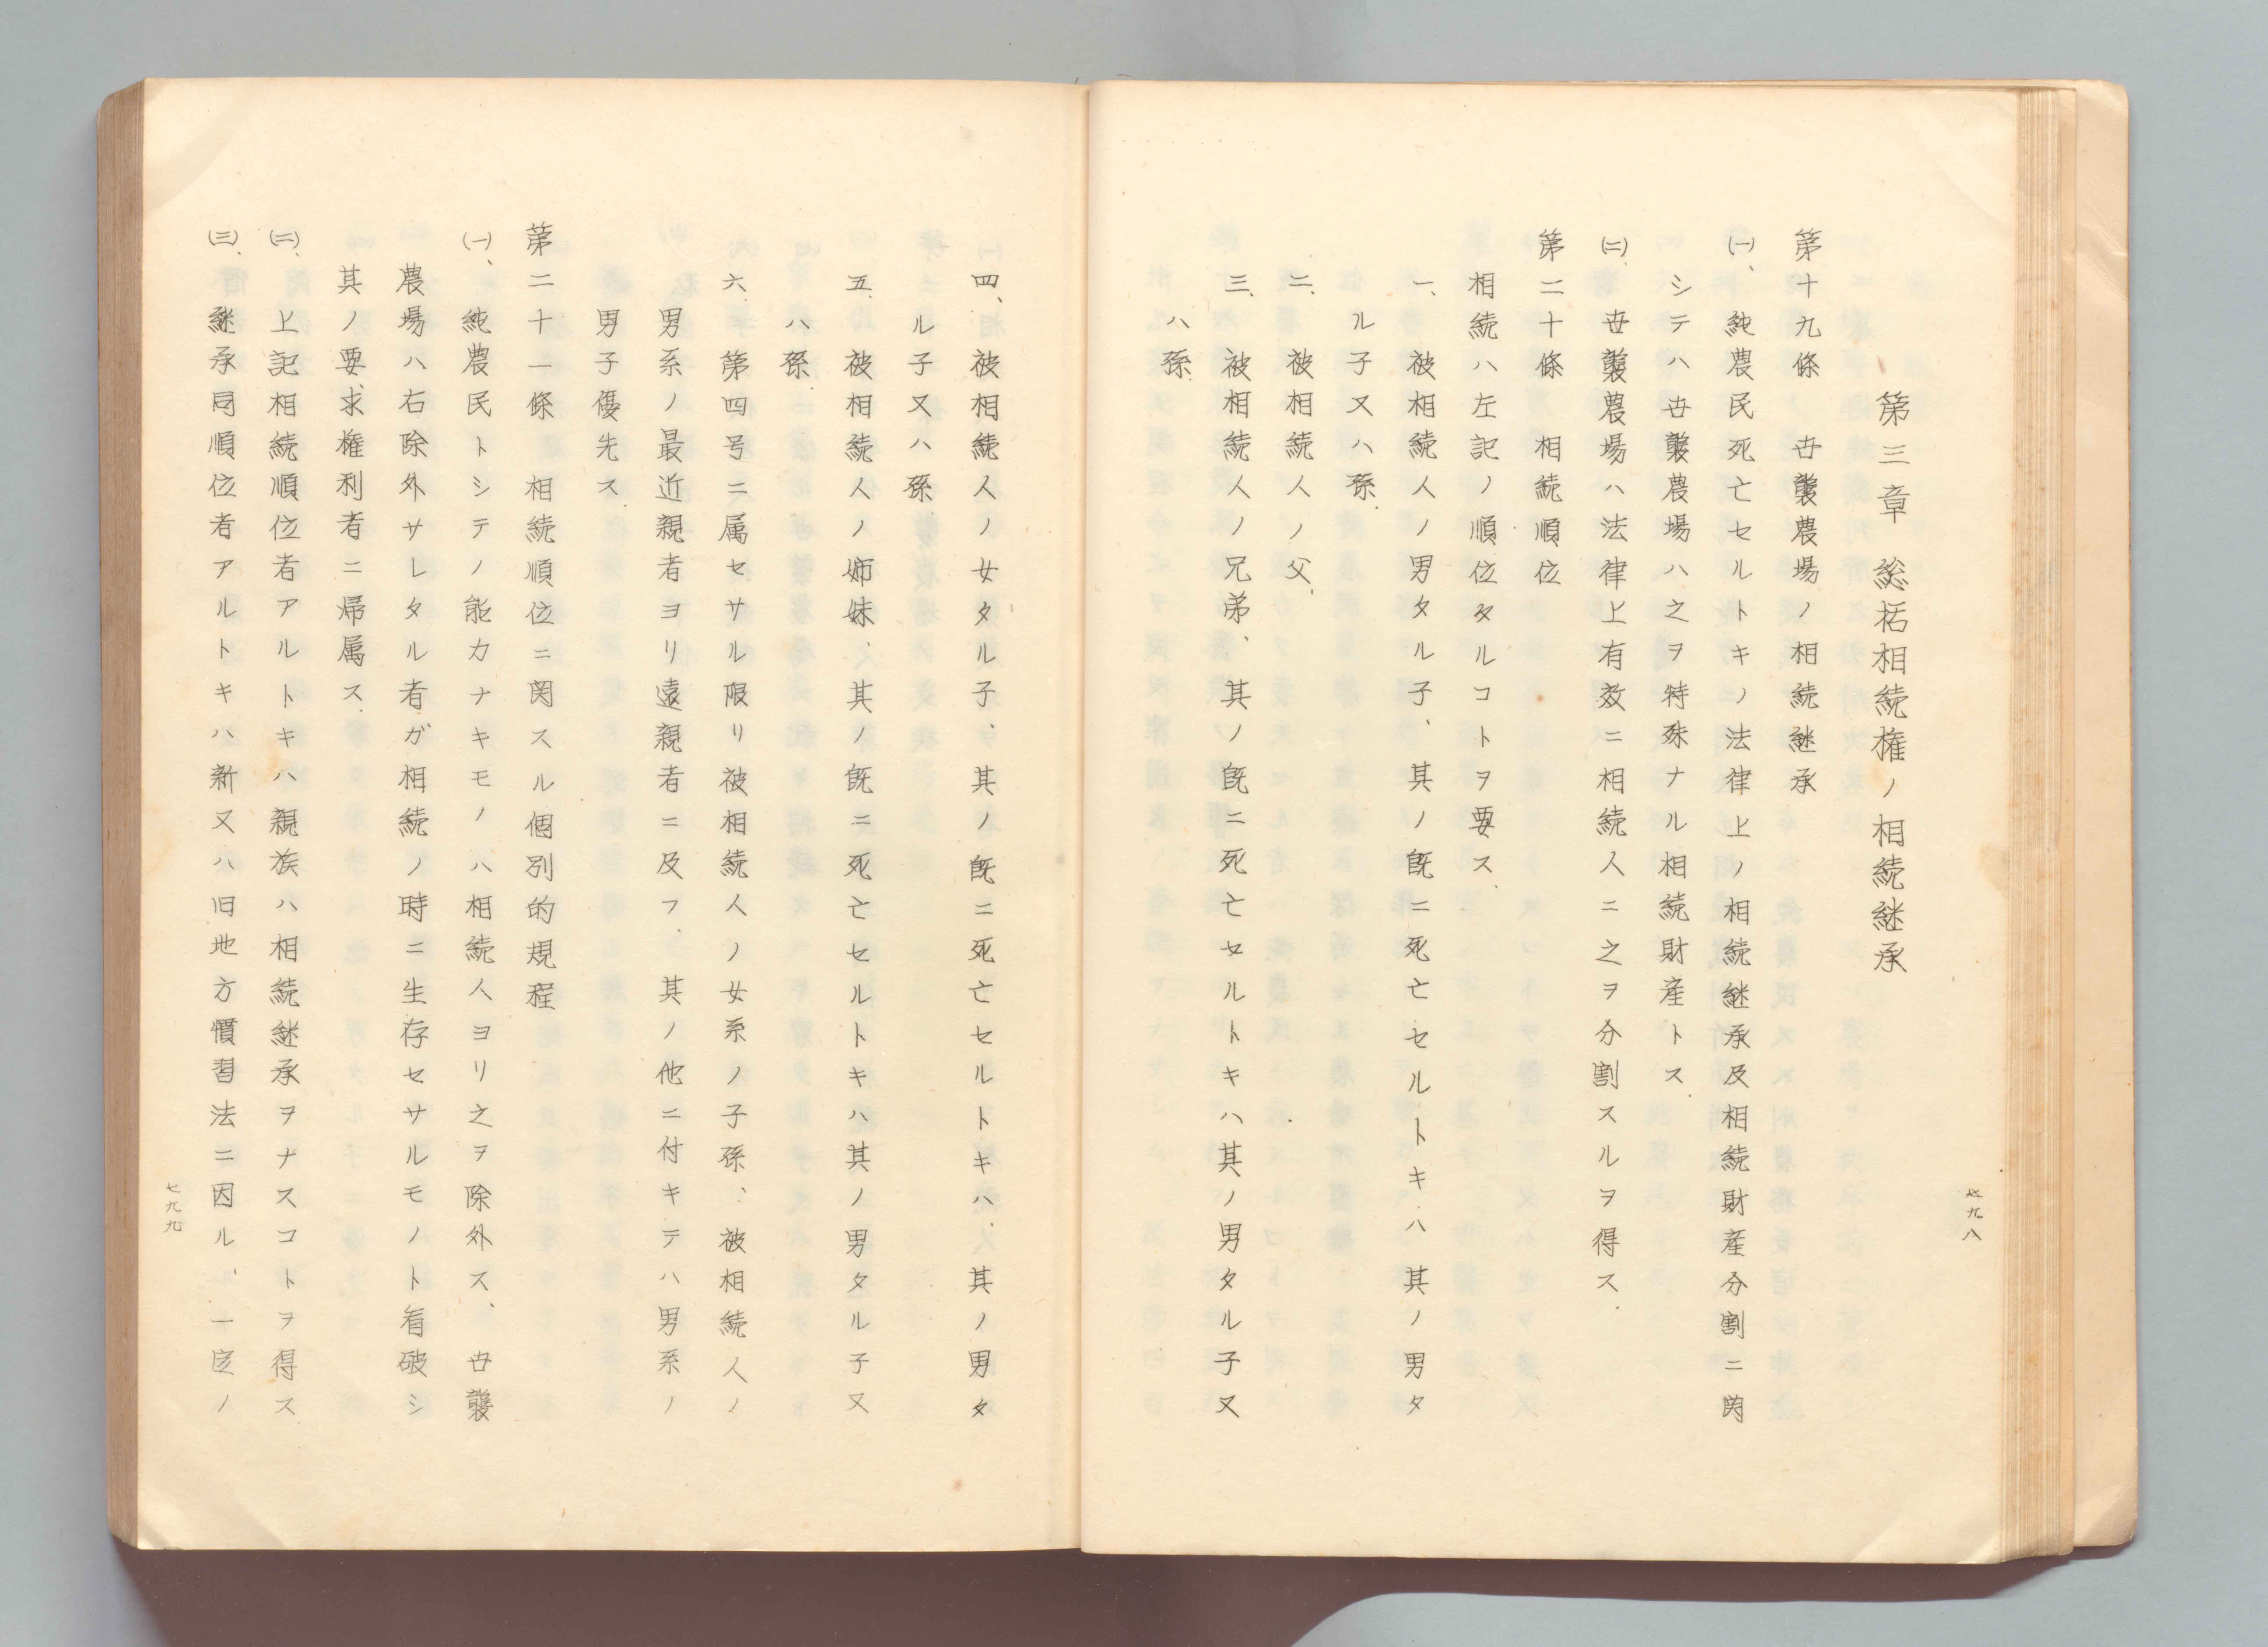 第三章　総括相続権ノ相続継承
第十九條　世襲農場ノ相続継承
㈠、純農民死亡セルトキノ法律上ノ相続継承及相続財産分割ニ関
シテハ世襲農場ハ之ヲ特殊ナル相続財産トス．
㈡、世襲農場ハ法律上有效ニ相続人ニ之ヲ分割スルヲ得ス．
第二十條　相続順位
相続ハ左記ノ順位タルコトヲ要ス．
一、被相続人ノ男タル子、其ノ既ニ死亡セルトキハ其ノ男タ
ル子又ハ孫．
二、被相続人ノ父、
三、被相続人ノ兄弟、其ノ既ニ死亡セルトキハ其ノ男タル子又
ハ孫
七九八
四、被相続人ノ女タル子、其ノ既ニ死亡セルトキハ、其ノ男タ
ル子又ハ孫．
五、被相続人ノ姉妹、其ノ既ニ死亡セルトキハ其ノ男タル子又
ハ孫．
六、第四号ニ属セサル限リ被相続人ノ女系ノ子孫、被相続人ノ
男系ノ最近親者ヨリ遠親者ニ及フ．其ノ他ニ付キテハ男系ノ
男子優先ス．
第二十一條　相続順位ニ関スル個別的規程
㈠、純農民トシテノ能力ナキモノハ相続人ヨリ之ヲ除外ス、世襲
農場ハ右除外サレタル者ガ相続ノ時ニ生存セサルモノト看破シ
其ノ要求権利者ニ帰属ス．
㈡、上記相続順位者アルトキハ親族ハ相続継承ヲナスコトヲ得ス
㈢、継承同順位者アルトキハ新又ハ旧地方慣習法ニ因ル、一定ノ
七九九